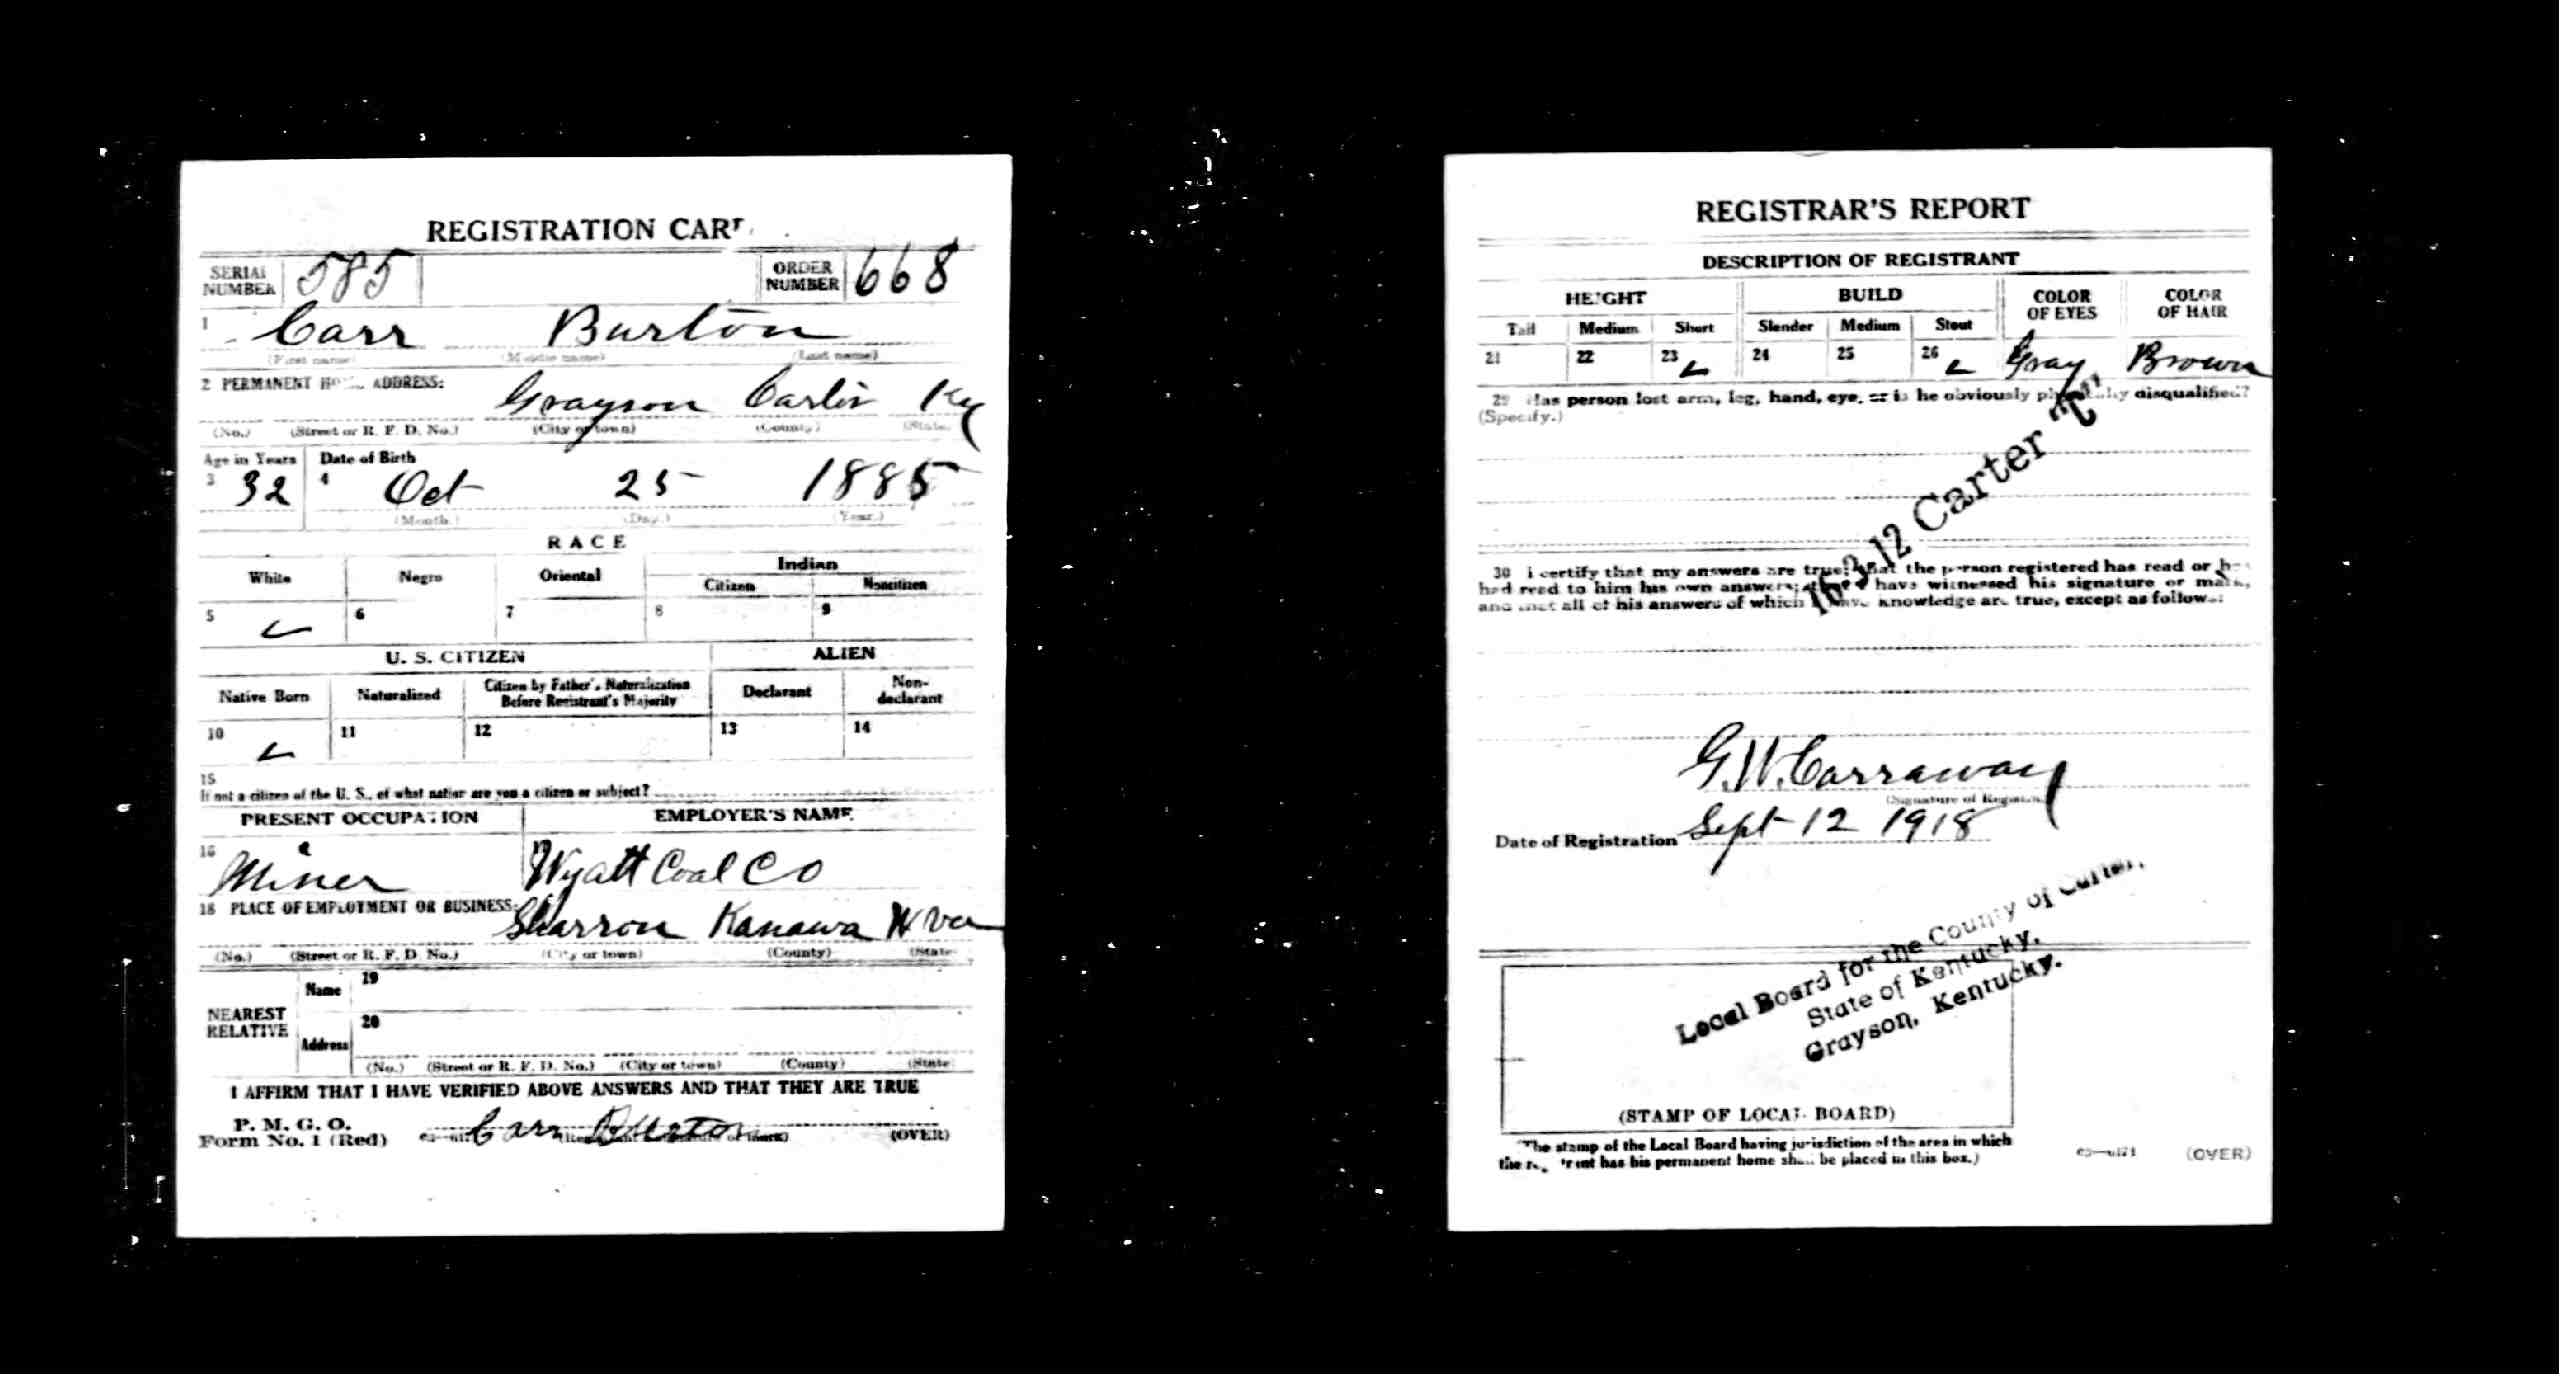 REGISTRATION CAR
SERIAL NUMBER 585 ORDER NUMBER 668
1 Carr Burton
(First name) (Middle name) (Last name)
2 PERMANENT HOME ADDRESS:
Grayson Carter Ky
(No.) (Street or R. F. D. No.) (City or town) (County) (State)
Age in Years Date of Birth
3 32 4 Oct 25 1885
(Month.) (Day.) (Year.)
RACE
White Negro Oriental Indian
Citizen Noncitizen
5 6 7 8 9
U. S. CITIZEN ALIEN
Native Born Naturalized Citizen by Father's Naturalization Before Registrant's Majority Declarant Non-declarant
10 11 12 13 14
15
If not a citizen of the U. S., of what nation are you a citizen or subject?
PRESENT OCCUPATION EMPLOYER'S NAME
16 Miner Wyatt Coal Co
18 PLACE OF EMPLOYMENT OR BUSINESS:
Sharron Kanawa W Va
(No.) (Street or R. F. D. No.) (City or town) (County) (State)
NEAREST RELATIVE Name 19
Address 20
(No.) (Street or R. F. D. No.) (City or town) (County) (State)
I AFFIRM THAT I HAVE VERIFIED ABOVE ANSWERS AND THAT THEY ARE TRUE
P. M. G. O.
Form No. 1 (Red) Carr Burton (OVER)
REGISTRAR'S REPORT
DESCRIPTION OF REGISTRANT
HEIGHT BUILD COLOR OF EYES COLOR OF HAIR
Tall Medium Short Slender Medium Stout
21 22 23 24 25 26 Gray Brown
29 Has person lost arm, leg, hand, eye, or is he obviously physically disqualified?
(Specify.)
16-3-12 Carter "C"
30 I certify that my answers are true; that the person registered has read or has
had read to him his own answers; that I have witnessed his signature or mark,
and that all of his answers of which I have knowledge are true, except as follows:
G. W. Carraway
(Signature of Registrar)
Date of Registration Sept 12 1918
Local Board for the County of Carter,
State of Kentucky,
Grayson, Kentucky.
(STAMP OF LOCAL BOARD)
(The stamp of the Local Board having jurisdiction of the area in which
the registrant has his permanent home shall be placed in this box.)
(OVER)